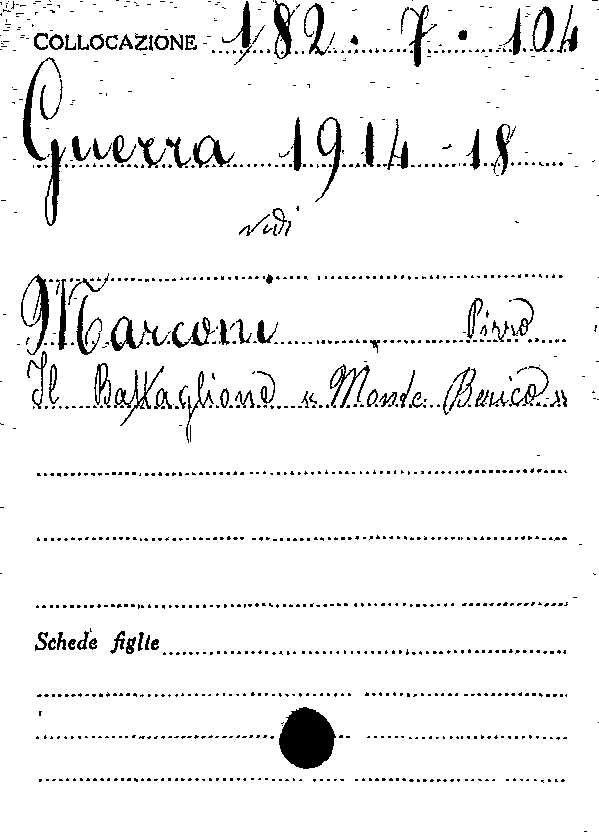 COLLOCAZIONE 182. 7. 104
Guerra 1914-18
vidi
Marconi Pirro
Il Battaglione « Monte Berico »
Schede figlie